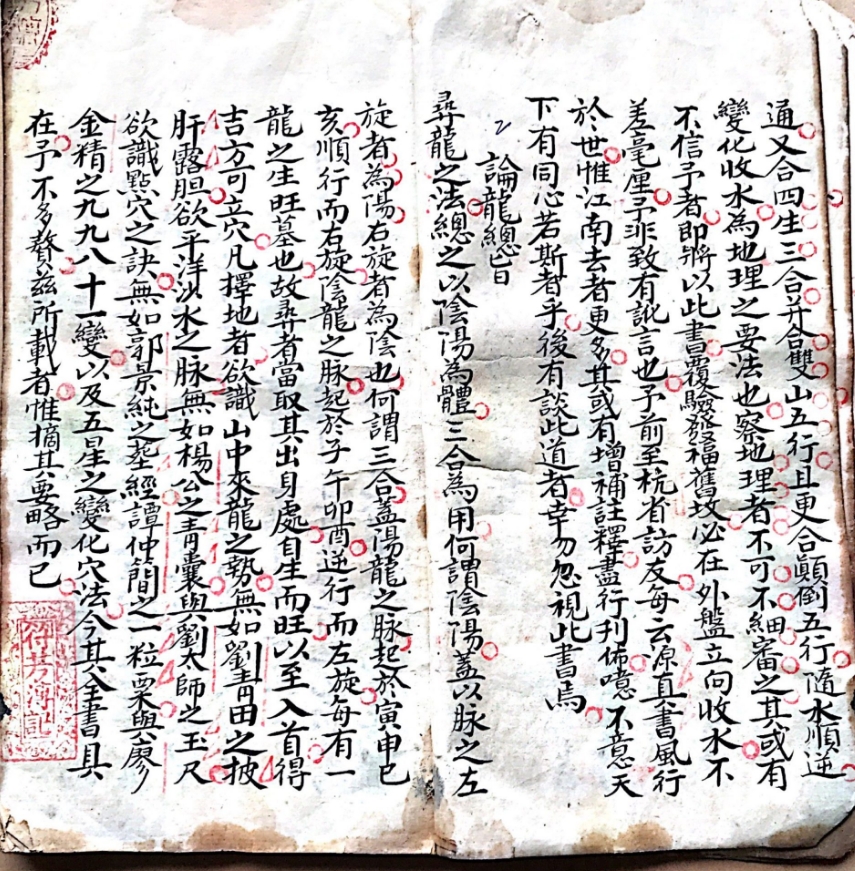 通又合四生三合并合雙山五行且更合顛倒五行隨水順逆
變化收水為地理之要法也察地理者不可不細審之其或有
不信予者即將以此書覆驗發福舊坟必在外盤立向收水不
差毫厘予非致有訛言也予前至杭省訪友每云源直書風行
於世惟江南去者更多其或有增補註釋盡行刊佈噫不意天
下有同心若斯者乎後有談此道者幸勿忽視此書焉
論龍總旨
尋龍之法總之以陰陽為體三合為用何謂陰陽蓋以脉之左
旋者為陽右旋者為陰也何謂三合蓋陽龍之脉起於寅申巳
亥順行而右旋陰龍之脉起於子午卯酉逆行而左旋每有一
龍之生旺墓也故尋者當取其出身處自生而旺以至入首得
吉方可立穴凡擇地者欲識山中來龍之勢無如劉青田之披
肝露胆欲平洋沙水之脉無如楊公之青囊與劉太師之玉尺
欲識點穴之訣無如郭景純之塟經譚仲簡之一粒粟與廖
金精之九九八十一變以及五星之變化穴法今其全書具
在予不多贅茲所載者惟摘其要略而已